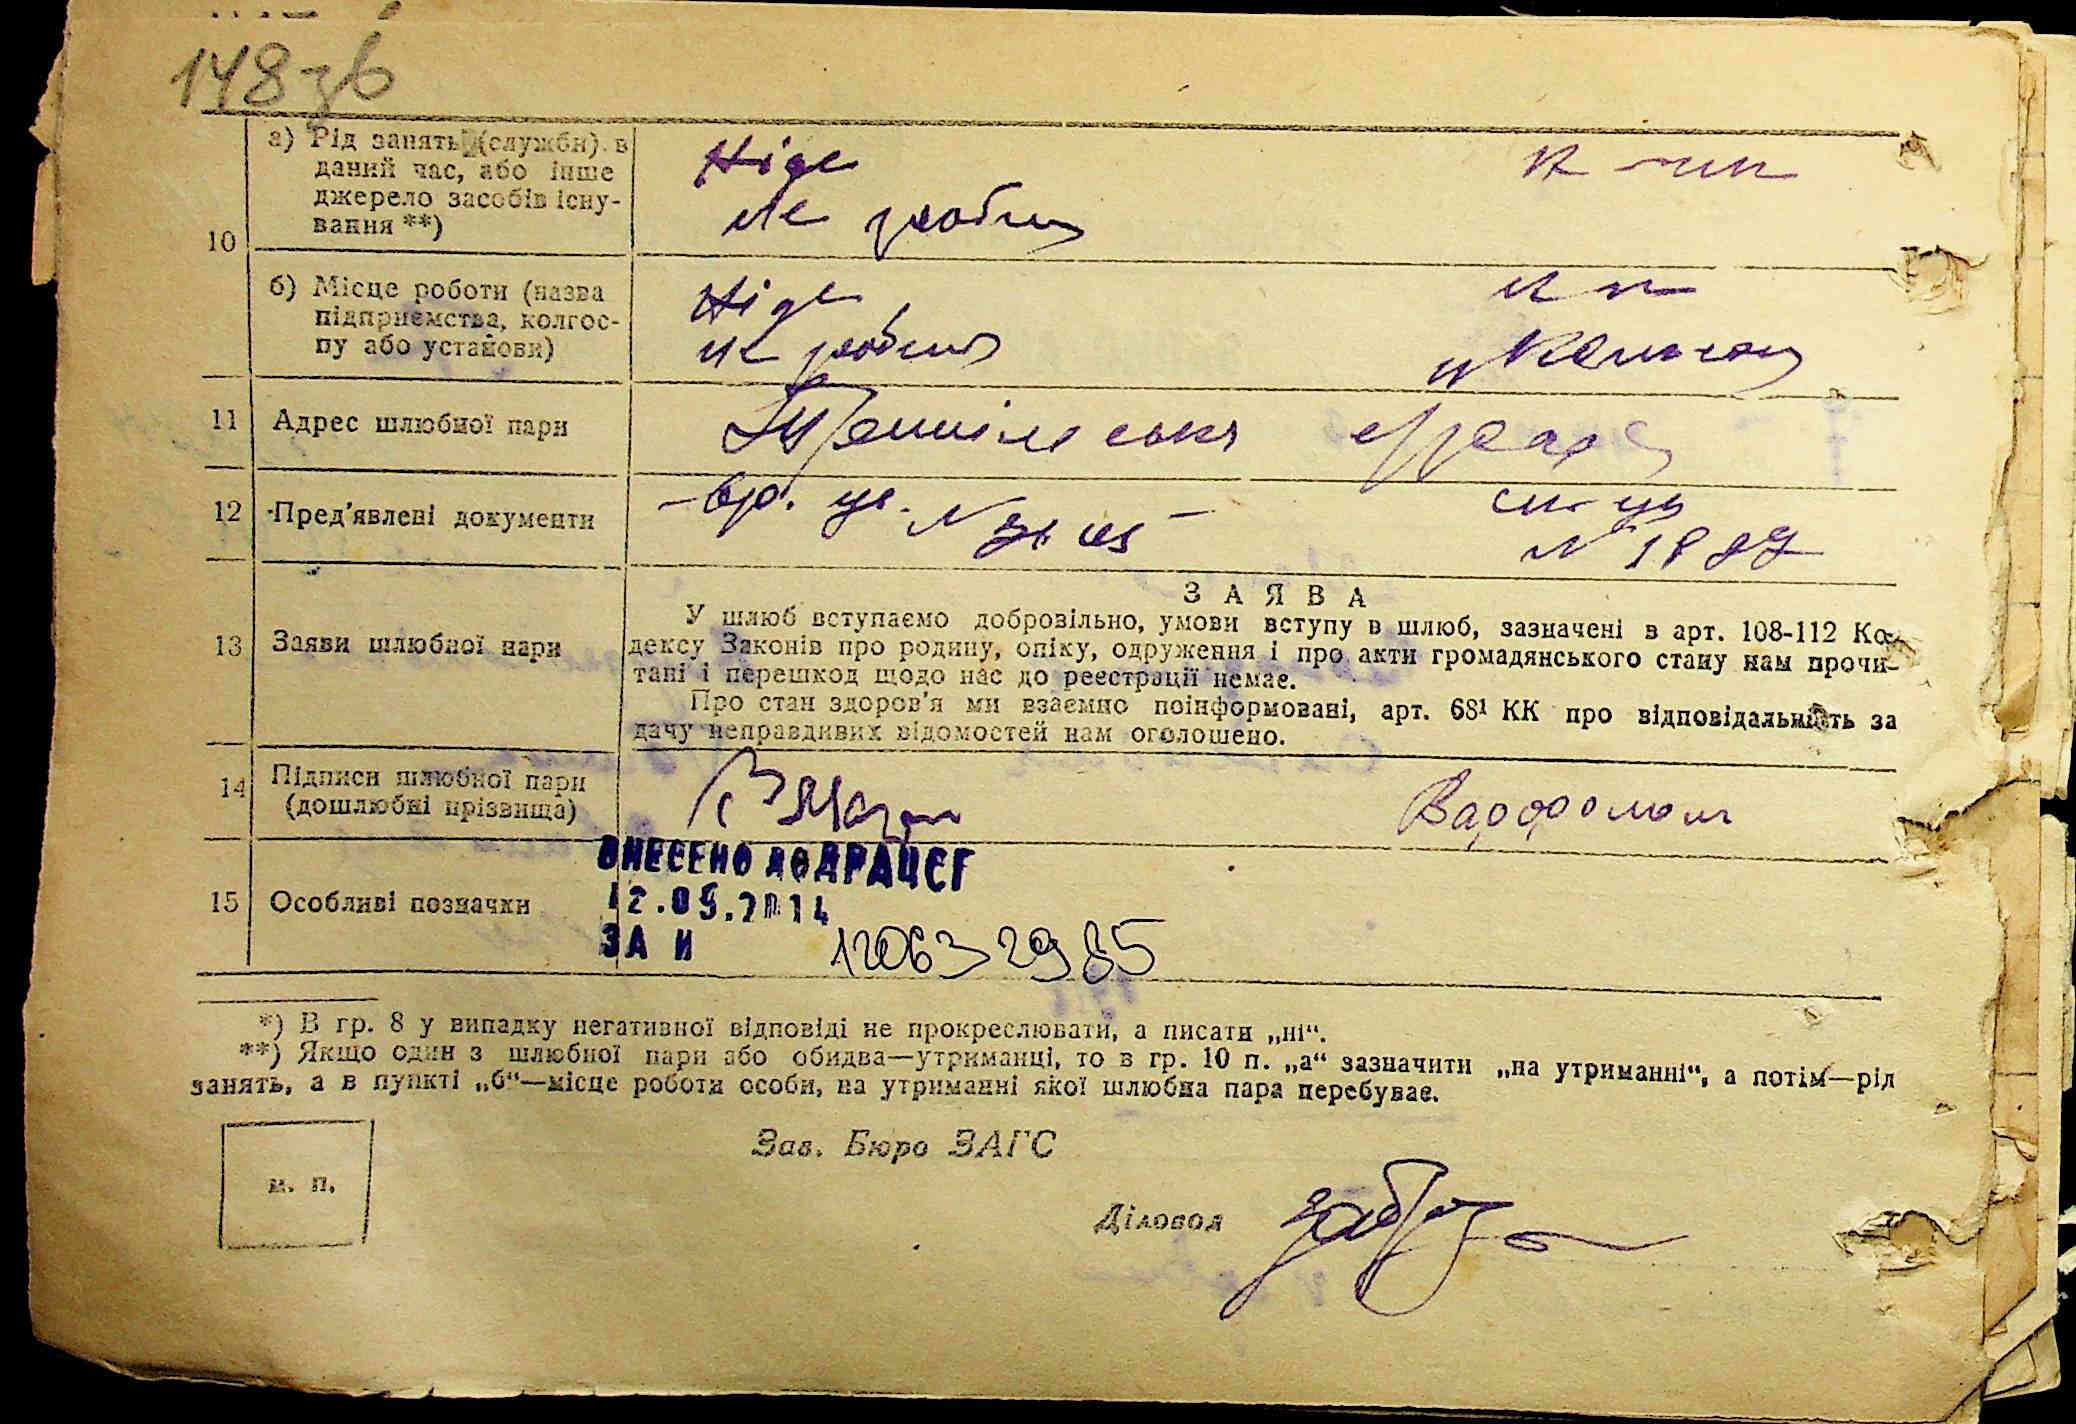 148 зв
10
а) Рід занять (служби) в
даний час, або інше
джерело засобів існу-
вання **)
Ніде
не робить
б) Місце роботи (назва
підприємства, колгос-
пу або установи)
Ніде
не робить
11 Адрес шлюбної пари
12 Пред'явлені документи
№
№ 1887
13 Заяви шлюбної пари
ЗАЯВА
У шлюб вступаємо добровільно, умови вступу в шлюб, зазначені в арт. 108-112 Ко-
дексу Законів про родину, опіку, одруження і про акти громадянського стану нам прочи-
тані і перешкод щодо нас до реєстрації немає.
Про стан здоров'я ми взаємно поінформовані, арт. 68¹ КК про відповідальність за
дачу неправдивих відомостей нам оголошено.
14 Підписи шлюбної пари
(дошлюбні прізвища)
15 Особливі позначки
ВНЕСЕНО ДО ДРАЦСГ
12.09.2014
ЗА И 120632985
*) В гр. 8 у випадку негативної відповіді не прокреслювати, а писати „ні“.
**) Якщо один з шлюбної пари або обидва—утриманці, то в гр. 10 п. „а“ зазначити „на утриманні“, а потім—рід
занять, а в пункті „б“—місце роботи особи, на утриманні якої шлюбна пара перебуває.
Зав. Бюро ЗАГС
м. п.
Діловод